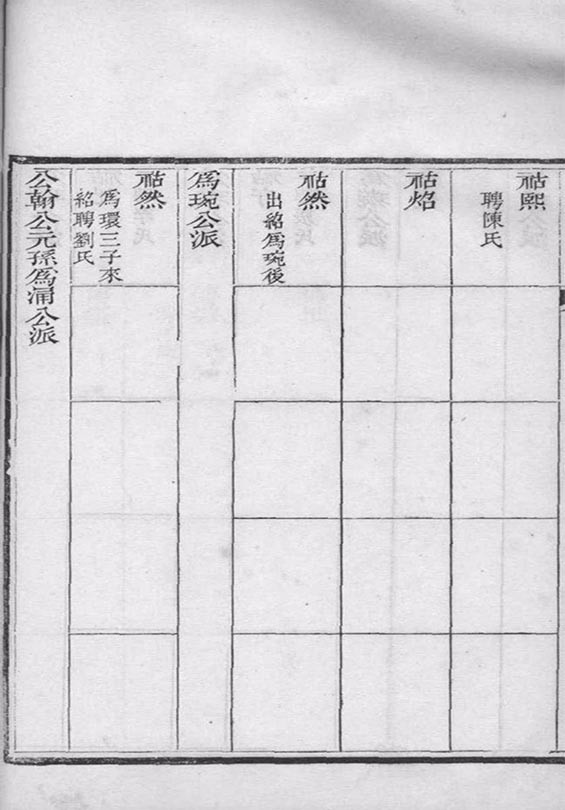 祜熙
聘陳氏
祜焰
祜然
出紹爲琬後
爲琬公派
祜然
爲環三子來
紹聘劉氏
公翰公元孫爲涌公派